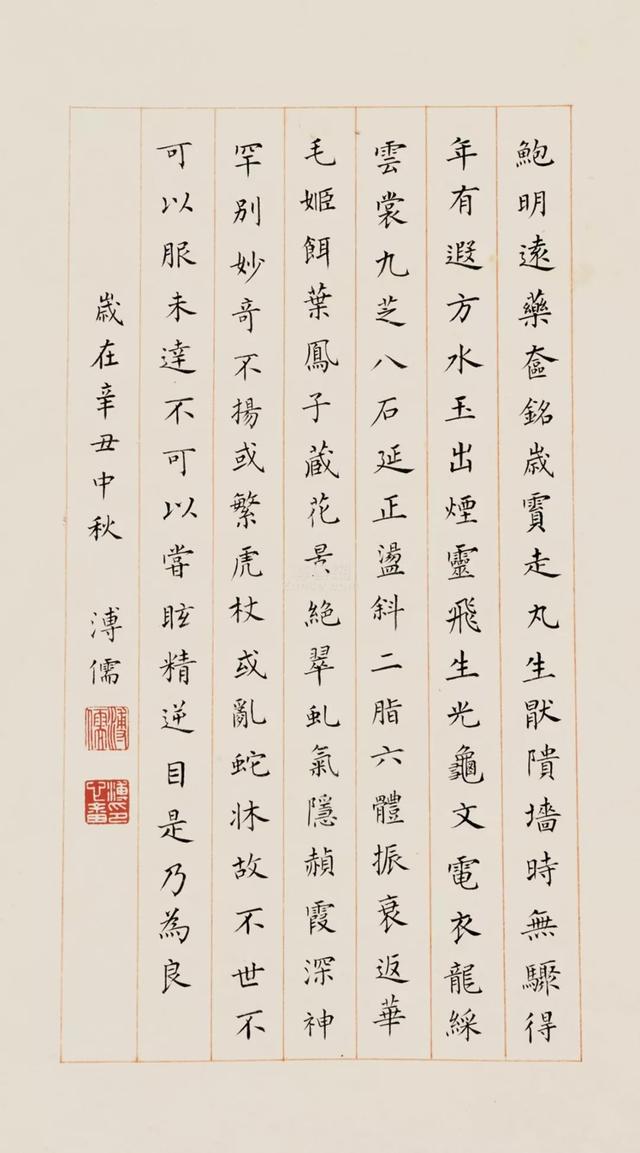 鮑明遠藥奩銘歲賓走丸生猒隤墻時無驟得
年有遐方水玉出煙靈飛生光龜文電衣龍綵
雲裳九芝八石延正盪斜二脂六體振衰返華
毛姬餌葉鳳子藏花景絕翠虬氣隱赬霞深神
罕別妙奇不揚或繁虎杖或亂蛇牀故不世不
可以服未達不可以嘗眩精逆目是乃為良
歲在辛丑中秋 溥儒
溥儒
溥心畬印